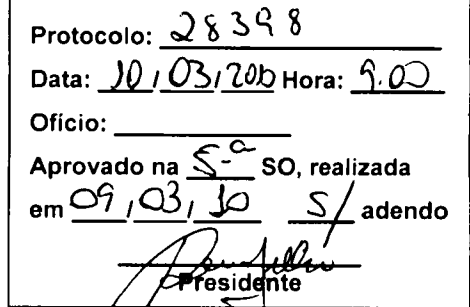 Protocolo: 28398
Data: 10/03/2010 Hora: 9:00
Ofício:
Aprovado na 5.ª SO, realizada
em 09/03/10 S/ adendo
Presidente